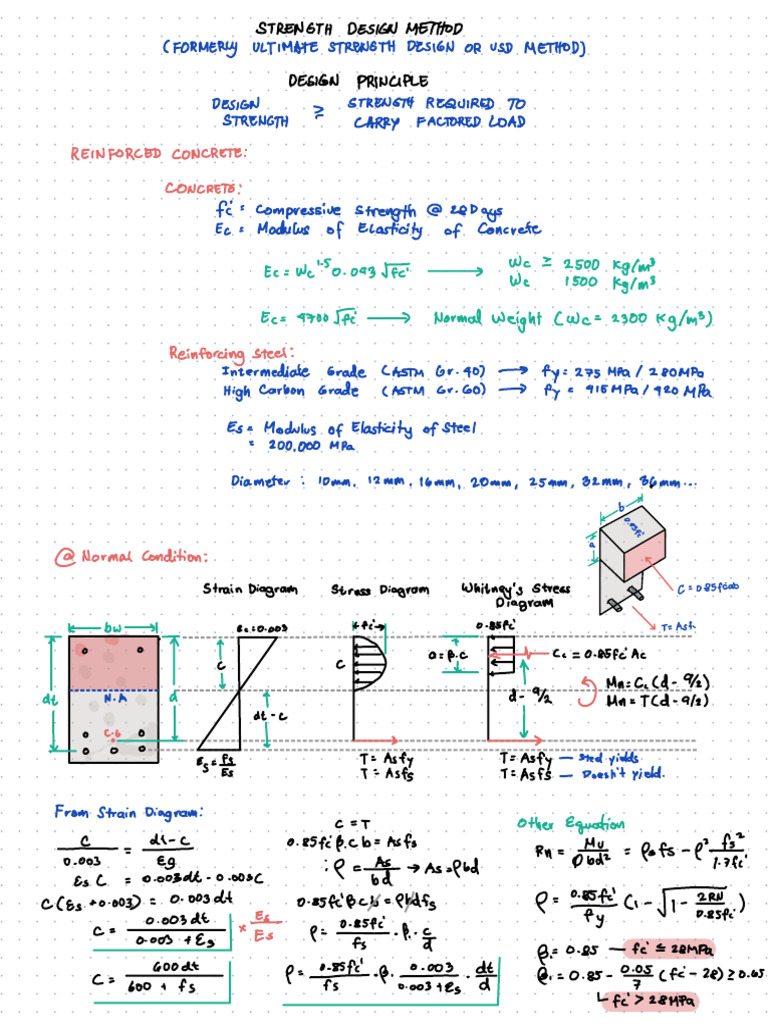 STRENGTH DESIGN METHOD
(FORMERLY ULTIMATE STRENGTH DESIGN OR USD METHOD)
DESIGN PRINCIPLE
DESIGN STRENGTH ≥ STRENGTH REQUIRED TO CARRY FACTORED LOAD
REINFORCED CONCRETE:
CONCRETE:
fc' = Compressive Strength @ 28 Days
Ec = Modulus of Elasticity of Concrete
Ec = Wc^1.5 0.043 √fc' → Wc ≥ 2500 kg/m³
Wc 1500 kg/m³
Ec = 4700 √fc' → Normal Weight (Wc = 2300 kg/m³)
Reinforcing Steel:
Intermediate Grade (ASTM Gr. 40) → fy = 275 MPa / 280 MPa
High Carbon Grade (ASTM Gr. 60) → fy = 415 MPa / 420 MPa
Es = Modulus of Elasticity of Steel
= 200,000 MPa
Diameter: 10mm, 12mm, 16mm, 20mm, 25mm, 32mm, 36mm...
b
0.85fc'
a
C = 0.85fc'ab
T = Asf
@ Normal Condition:
Strain Diagram
Stress Diagram
Whitney's Stress Diagram
bw
Ec = 0.003
fc'
0.85fc'
dt
d
N.A
C.G
c
dt - c
Es = fs/Es
C
a = β.c
Cc = 0.85fc' Ac
d - a/2
Mn = Cc (d - a/2)
Mn = T (d - a/2)
T = Asfy
T = Asfs
T = Asfy — Steel yields
T = Asfs — Doesn't yield.
From Strain Diagram:
c/0.003 = dt-c/Es
Es C = 0.003dt - 0.003C
C (Es + 0.003) = 0.003dt
C = 0.003dt / 0.003 + Es × Es/Es
C = 600dt / 600 + fs
C = T
0.85fc' β.c b = Asfs
∴ ρ = As/bd → As = ρbd
0.85fc' β.c.b = ρbdfs
ρ = 0.85fc'/fs · β. c/d
ρ = 0.85fc'/fs · β. 0.003/0.003+Es · dt/d
Other Equation
Rn = Mu/Øbd² = ρfs - ρ² fs²/1.7fc'
ρ = 0.85fc'/fy (1 - √1 - 2RN/0.85fc')
β₁ = 0.85 — fc' ≤ 28MPa
β₁ = 0.85 - 0.05/7 (fc' - 28) ≥ 0.65
fc' > 28MPa